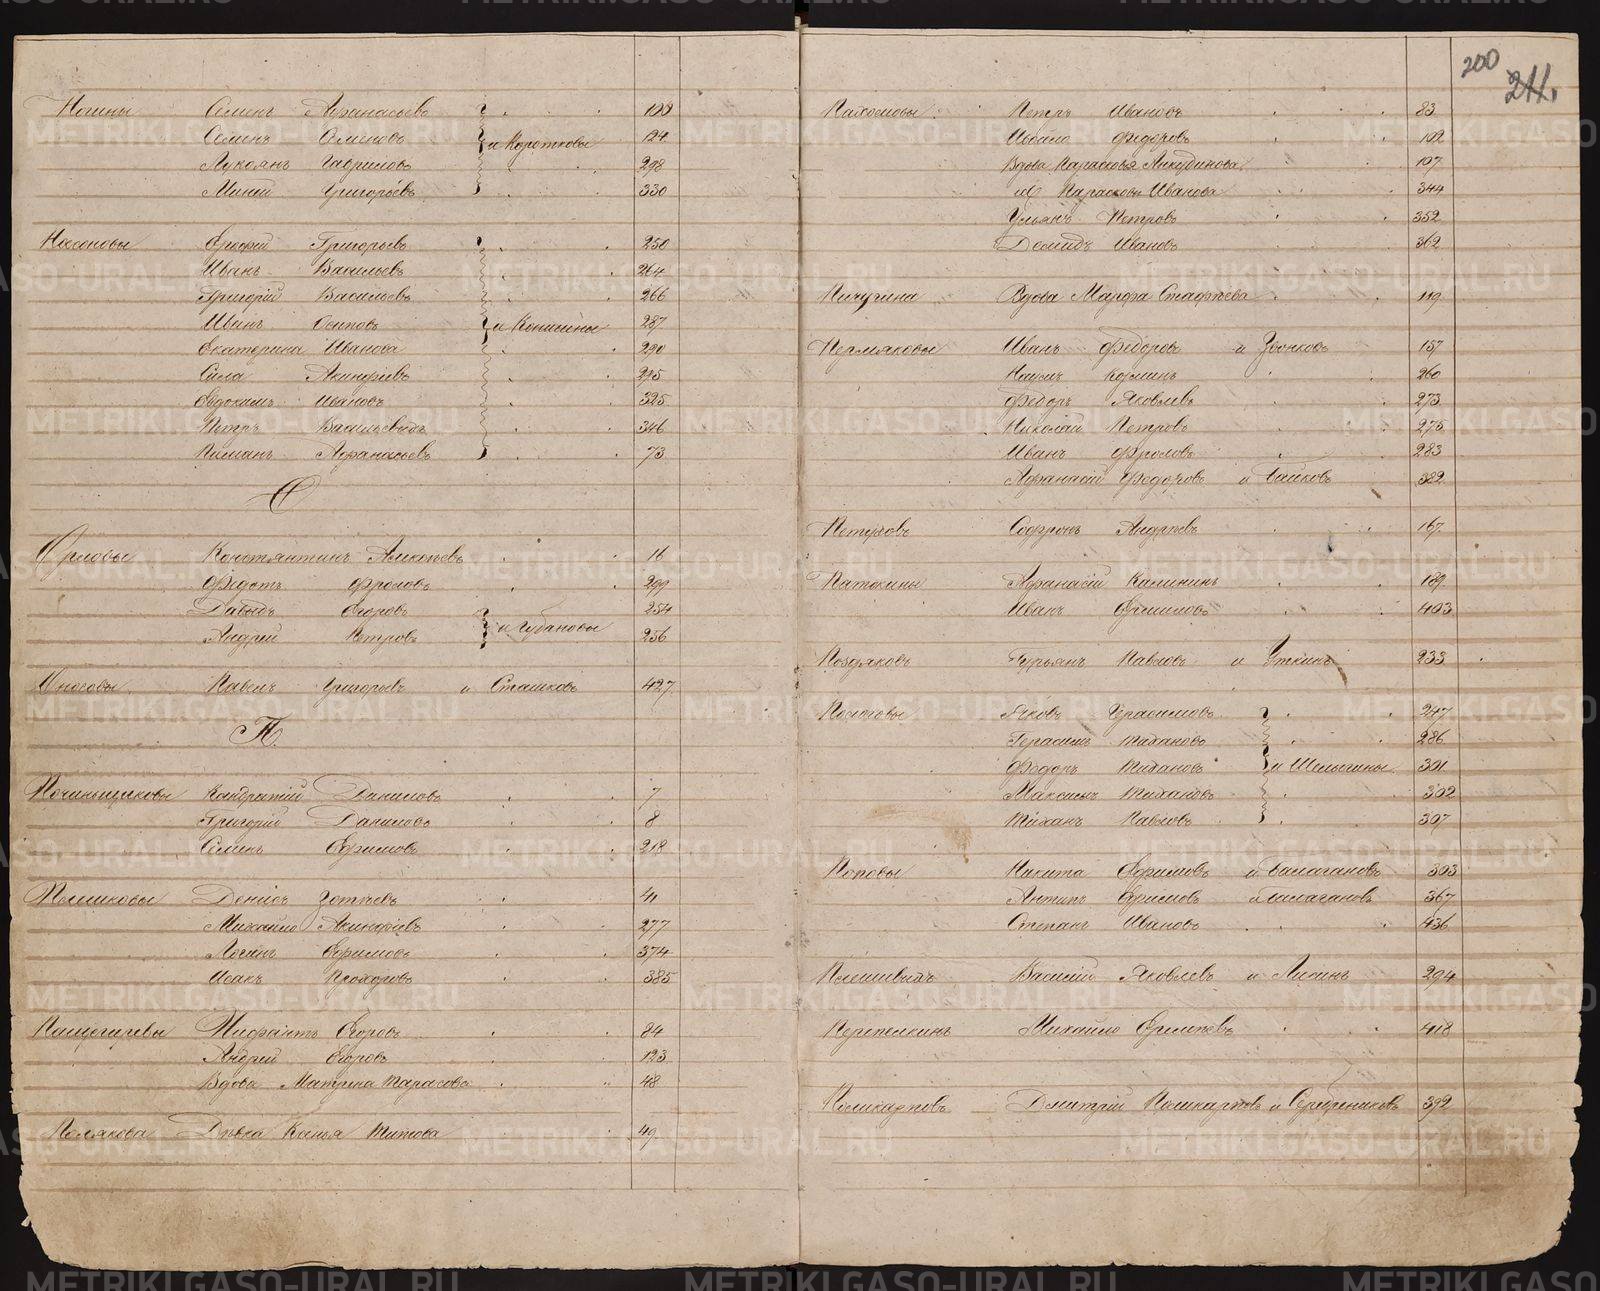 Семенъ Афанасьевъ 108
Семенъ Семеновъ и Коротковы 124
Лукоянъ Гавриловъ 298
Миней Григорьевъ 330
Насоновы Ерофей Григорьевъ 250
Иванъ Васильевъ 264
Григорий Васильевъ 266
Иванъ Осиповъ 287
Екатерина Иванова 290
Сила Акинфиевъ 295
Евдокимъ Ивановъ 325
Петръ Васильевичъ 346
Пиманъ Афанасьевъ 73
О
Орловы Константинъ Алексѣевъ 16
Федотъ Фроловъ 299
Давыдъ Егоровъ 254
Андрей Петровъ и Губановы 256
Оносовы Павелъ Григорьевъ и Сташковъ 427
П.
Починьщиковы Кандратий Даниловъ 7
Григорий Даниловъ 8
Семенъ Ефимовъ 218
Пешковы Денисъ Зотѣевъ 41
Михайло Акинфиевъ 277
Логинъ Ефимовъ 374
Исакъ Прохоровъ 385
Егоровъ 24
Андрей Егоровъ 123
Вдова Матрена Тарасова 48
Полякова Дѣвка Титова 49
200
211.
Пахомовы Петръ Ивановъ 83
Ивано Федоровъ 102
Вдова Парасковья Анкудинова 107
Парасковья Иванова 344
Ульянъ Петровъ 352
Демидъ Ивановъ 362
Пичугина Вдова Марфа Стафѣева 119
Пермяковы Иванъ Федоровъ и Звонковъ 157
Наумъ Козминъ 260
Федоръ Яковлевъ 273
Николай Петровъ 275
Иванъ Фроловъ 283
Афанасий Федоровъ и 382
Петуховъ Софронъ Андрѣевъ 167
Патокины Афанасий Калининъ 189
Иванъ 403
Поздяковъ Гурьянъ Павловъ и Уткинъ 233
Яковъ Герасимовъ 247
Герасимъ Тихановъ 286
Федоръ Тихановъ и Шелыгины 301
Максимъ Тихановъ 302
Тиханъ Павловъ 307
Поповы Никита Ефимовъ и Балагановъ 303
Антипъ Ефимовъ и Балагановъ 367
Степанъ Ивановъ 436
Василий Яковлевъ и 294
Перепелкинъ Михайло 418
Поликарповъ Дмитрий Поликарповъ и Серебрениковъ 392
METRIKI.GASO-URAL.RU